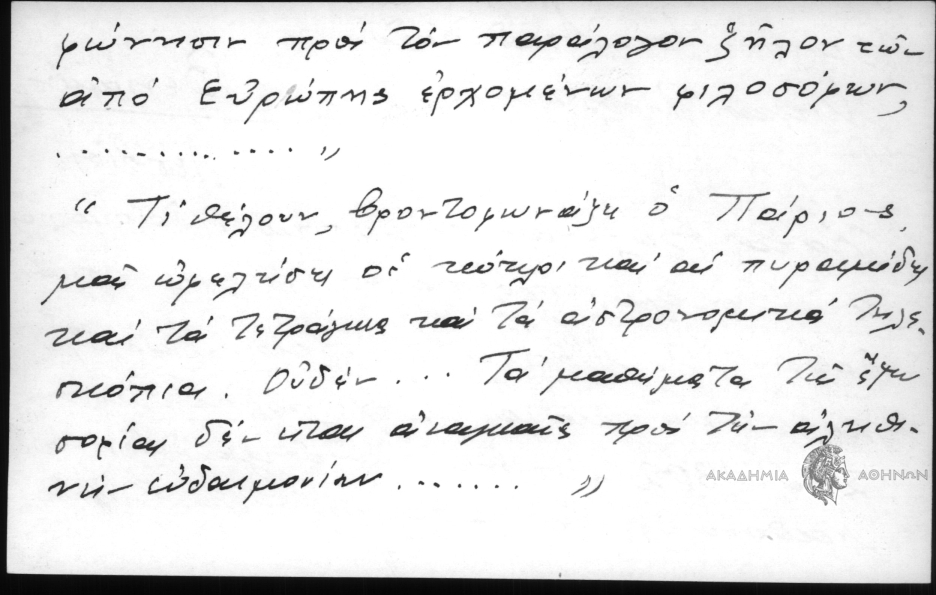 φώνησιν πρὸς τὸν παράλογον ζῆλον τῶν
ἀπὸ Εὐρώπης ἐρχομένων φιλοσόφων,
.................»
“ Τί θέλουν, βροντοφωνάζει ὁ Πάριος,
μᾶς ὠφελήσῃ οἱ κύκλοι καὶ αἱ πυραμίδες
καὶ τὰ τετράγωνα καὶ τὰ ἀστρονομικὰ τηλε-
σκόπια. Οὐδέν ... Τὰ μαθήματα τῆς ἔξω
σοφίας δὲν εἶναι ἀναγκαῖα πρὸς τὴν ἀληθι-
νὴν εὐδαιμονίαν ....... »
ΑΚΑΔΗΜΙΑ ΑΘΗΝΩΝ